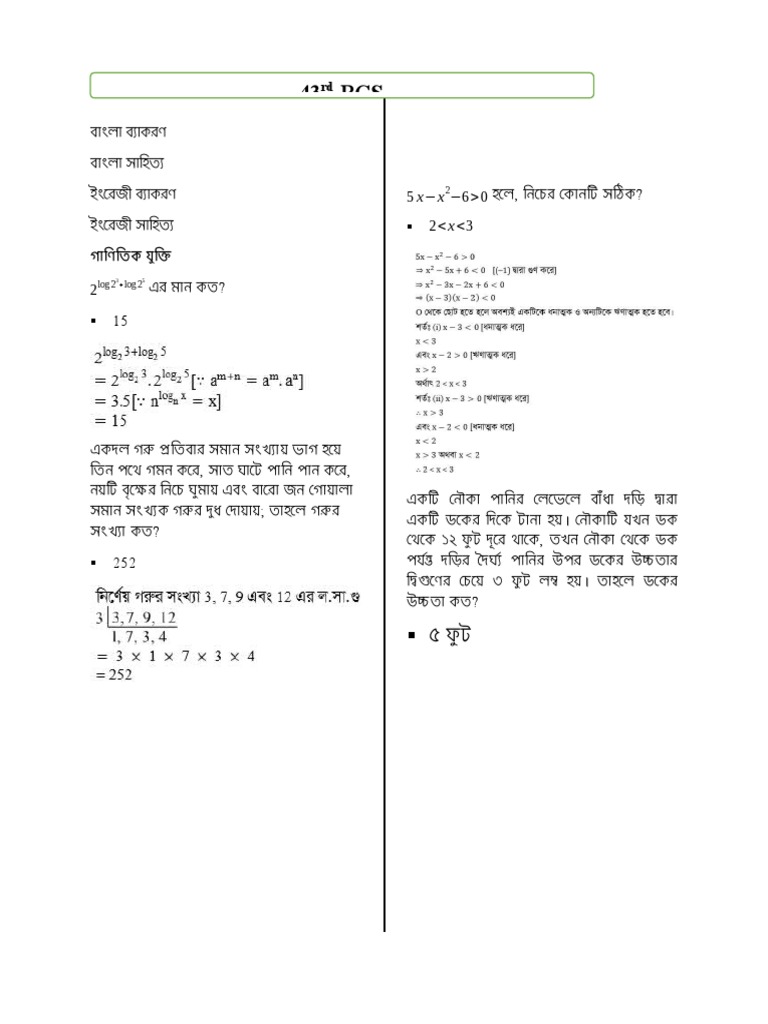 43rd BCS
বাংলা ব্যাকরণ
বাংলা সাহিত্য
ইংরেজী ব্যাকরণ
ইংরেজী সাহিত্য
গাণিতিক যুক্তি
এর মান কত?
▪ 15
2^{log₂ 3+log₂ 5}
= 2^{log₂ 3}.2^{log₂ 5}[∵ a^{m+n} = a^m. a^n]
= 3.5[∵ n^{log_n x} = x]
= 15
একদল গরু প্রতিবার সমান সংখ্যায় ভাগ হয়ে
তিন পথে গমন করে, সাত ঘাটে পানি পান করে,
নয়টি বৃক্ষের নিচে ঘুমায় এবং বারো জন গোয়ালা
সমান সংখ্যক গরুর দুধ দোয়ায়; তাহলে গরুর
সংখ্যা কত?
▪ 252
নির্ণেয় গরুর সংখ্যা 3, 7, 9 এবং 12 এর ল.সা.গু
3 |3, 7, 9, 12
1, 7, 3, 4
= 3 × 1 × 7 × 3 × 4
= 252
5x−x²−6>0 হলে, নিচের কোনটি সঠিক?
▪ 2<x<3
5x − x² − 6 > 0
⇒ x² − 5x + 6 < 0 [(−1) দ্বারা গুণ করে]
⇒ x² − 3x − 2x + 6 < 0
⇒ (x − 3)(x − 2) < 0
O থেকে ছোট হতে হলে অবশ্যই একটিকে ধনাত্মক ও অন্যটিকে ঋণাত্মক হতে হবে।
শর্তঃ (i) x − 3 < 0 [ধনাত্মক ধরে]
x < 3
এবং x − 2 > 0 [ঋণাত্মক ধরে]
x > 2
অর্থাৎ 2 < x < 3
শর্তঃ (ii) x − 3 > 0 [ঋণাত্মক ধরে]
∴ x > 3
এবং x − 2 < 0 [ধনাত্মক ধরে]
x < 2
x > 3 অথবা x < 2
∴ 2 < x < 3
একটি নৌকা পানির লেভেলে বাঁধা দড়ি দ্বারা
একটি ডকের দিকে টানা হয়। নৌকাটি যখন ডক
থেকে ১২ ফুট দূরে থাকে, তখন নৌকা থেকে ডক
পর্যন্ত দড়ির দৈর্ঘ্য পানির উপর ডকের উচ্চতার
দ্বিগুণের চেয়ে ৩ ফুট লম্ব হয়। তাহলে ডকের
উচ্চতা কত?
▪ ৫ ফুট